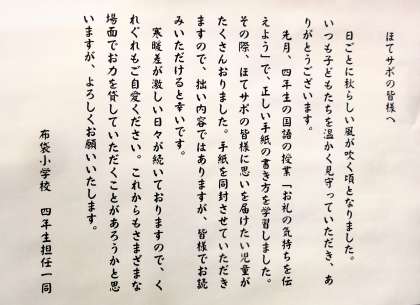 ほてサポの皆様へ
日ごとに秋らしい風が吹く頃となりました。
いつも子どもたちを温かく見守っていただき、あ
りがとうございます。
先月、四年生の国語の授業「お礼の気持ちを伝
えよう」で、正しい手紙の書き方を学習しました。
その際、ほてサポの皆様に思いを届けたい児童が
たくさんおりました。手紙を同封させていただき
ますので、拙い内容ではありますが、皆様でお読
みいただけると幸いです。
寒暖差が激しい日々が続いておりますので、く
れぐれもご自愛ください。これからもさまざまな
場面でお力を貸していただくことがあろうかと思
いますが、よろしくお願いいたします。
布袋小学校 四年生担任一同